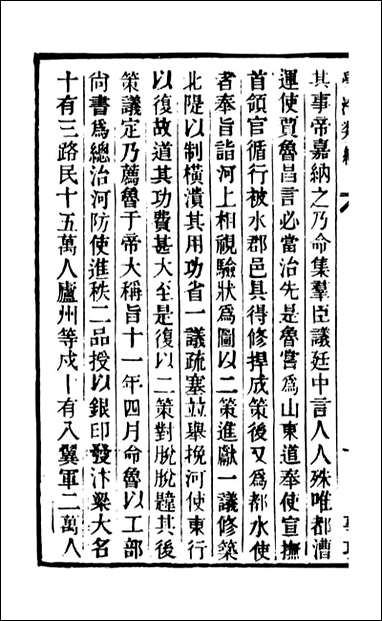 其事帝嘉納之乃命集羣臣議廷中言人人殊唯都漕
運使賈魯昌言必當治先是魯嘗爲山東道奉使宣撫
首領官循行被水郡邑具得修捍成策後又爲都水使
者奉旨詣河上相視驗狀爲圖以二策進獻一議修築
北隄以制橫潰其用功省一議疏塞並舉挽河使東行
以復故道其功費甚大至是復以二策對脫脫韙其後
策議定乃薦魯于帝大稱旨十一年四月命魯以工部
尙書爲總治河防使進秩二品授以銀印發汴梁大名
十有三路民十五萬人廬州等戍十有八翼軍二萬人